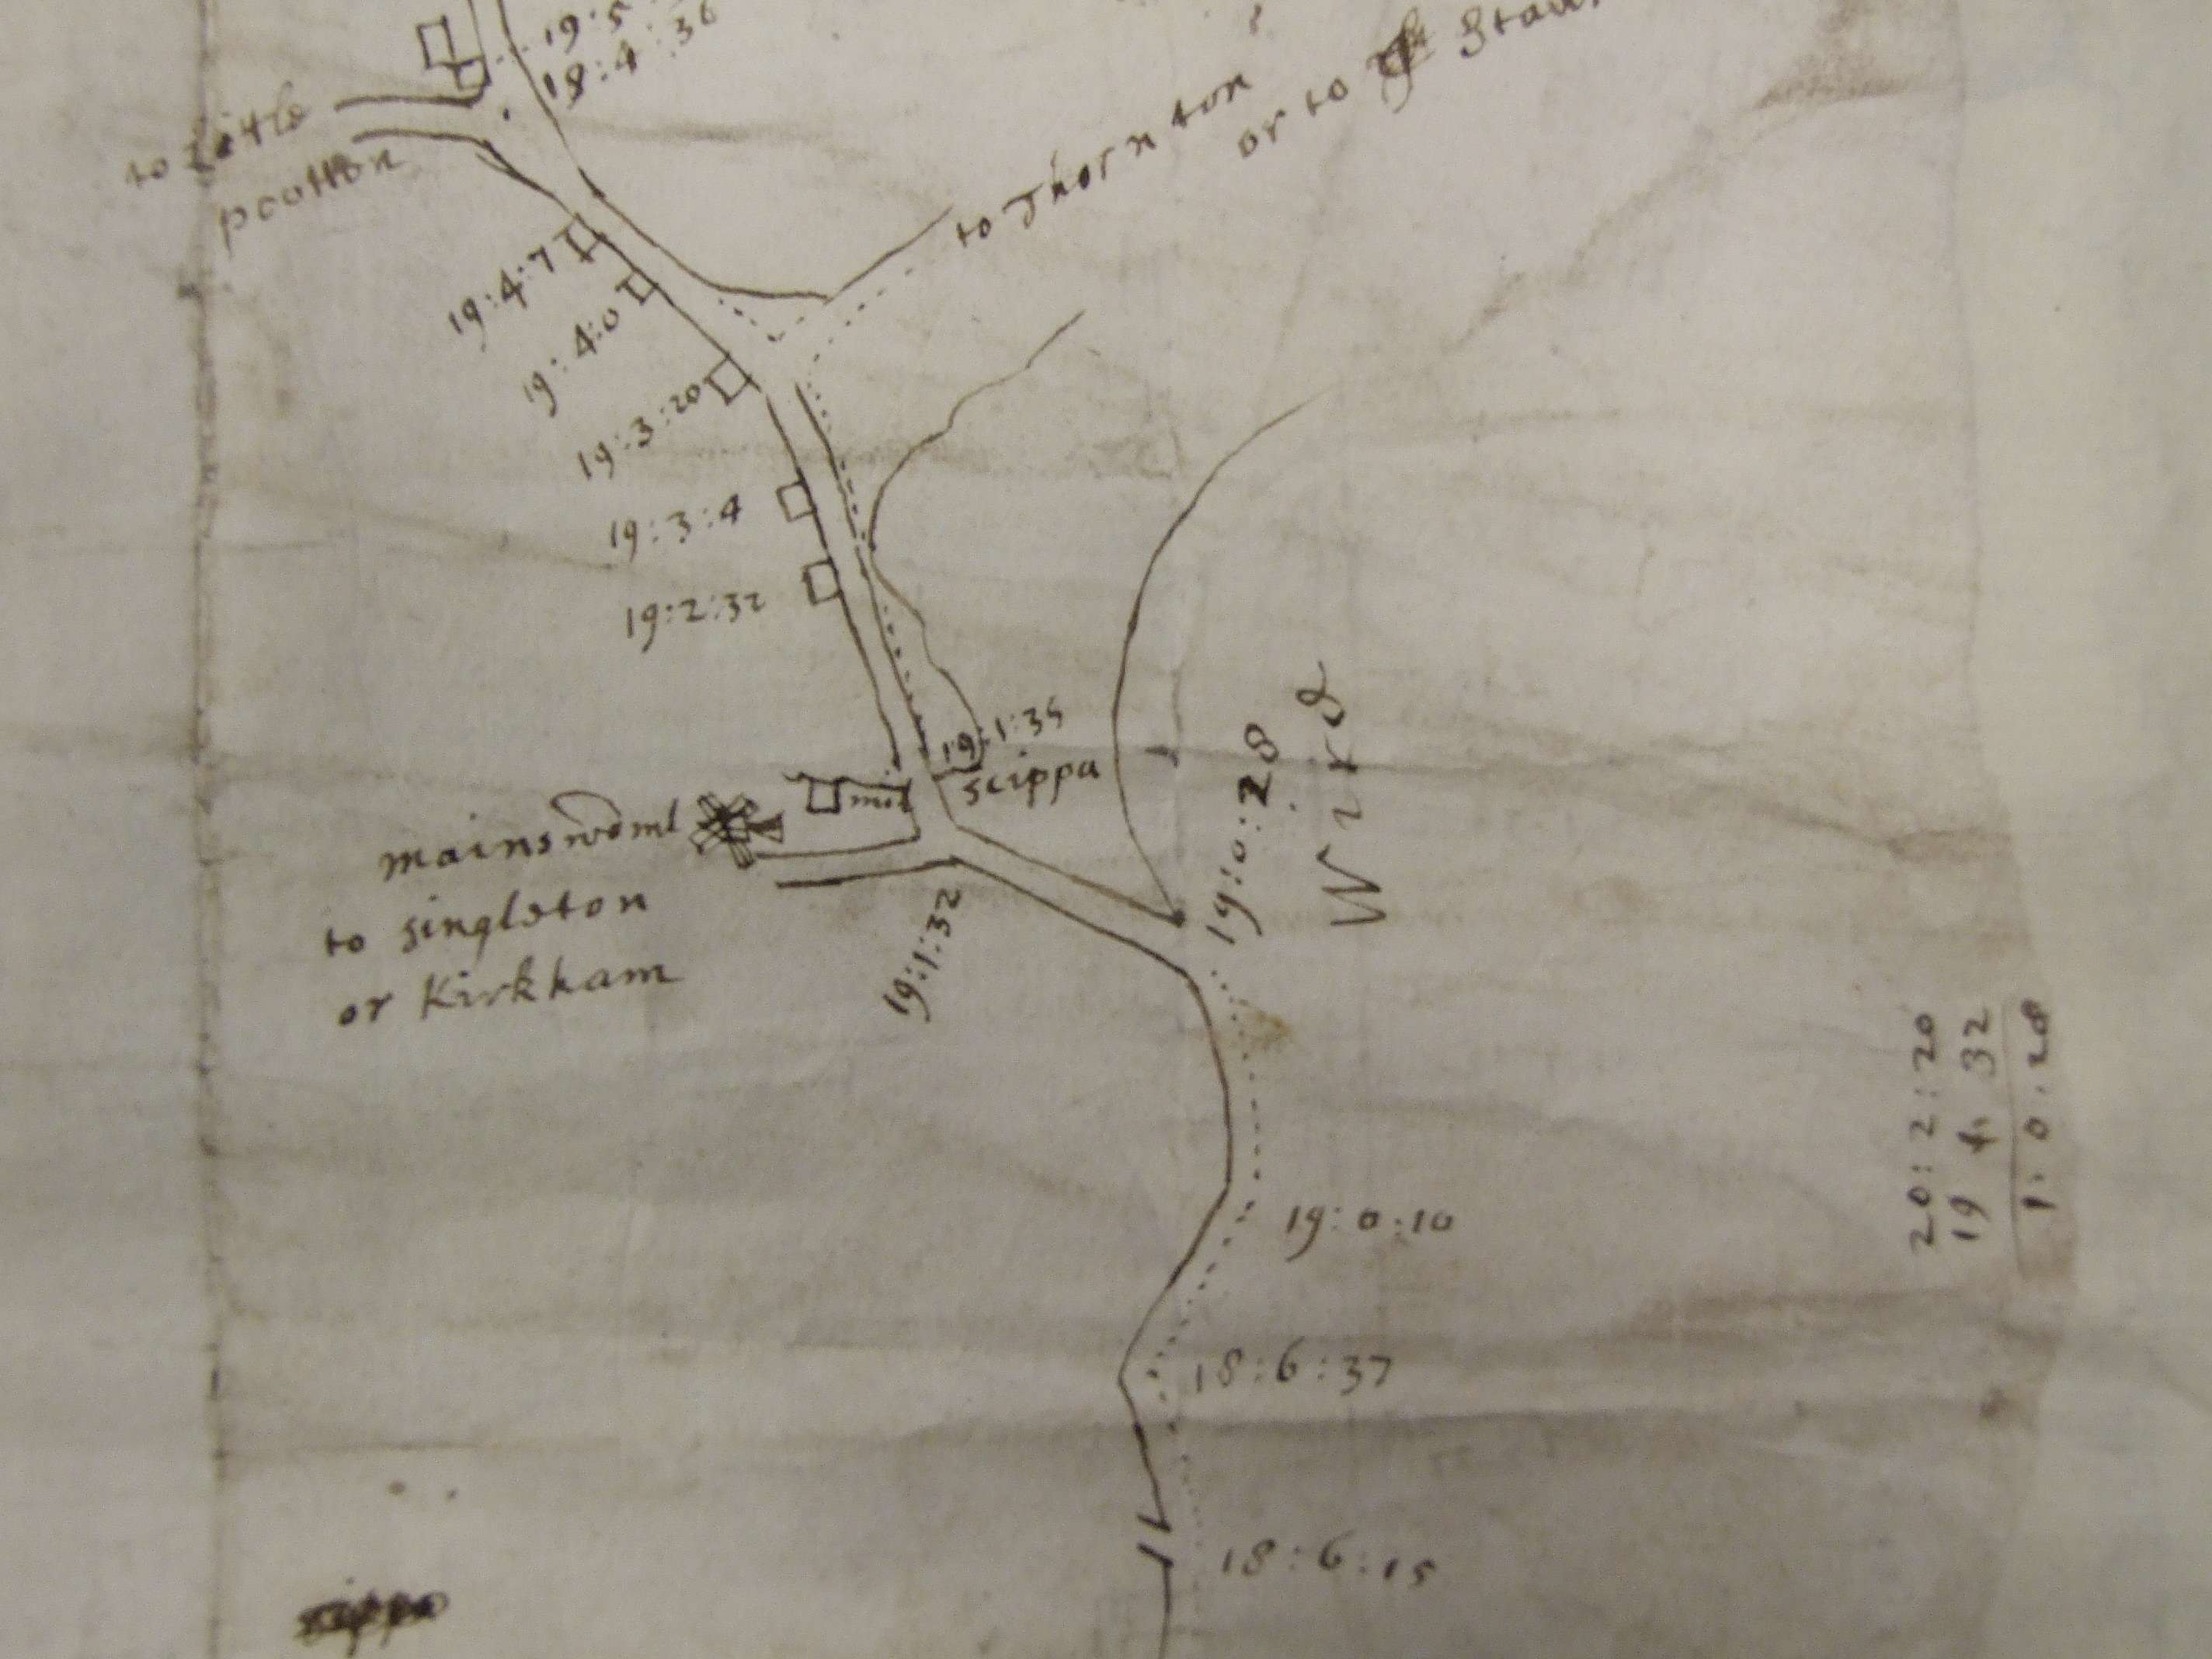 19:5
19:4:36
to Little
poolton
to Thornton
or to
19:4:7
19:4:0
19:3:20
19:3:4
19:2:32
19:1:35
scippa
mil
mains
to singleton
or Kirkham
19:1:32
19:0:28
Wird
19:0:10
18:6:37
18:6:15
20:2:20
19 4 32
1:0:28